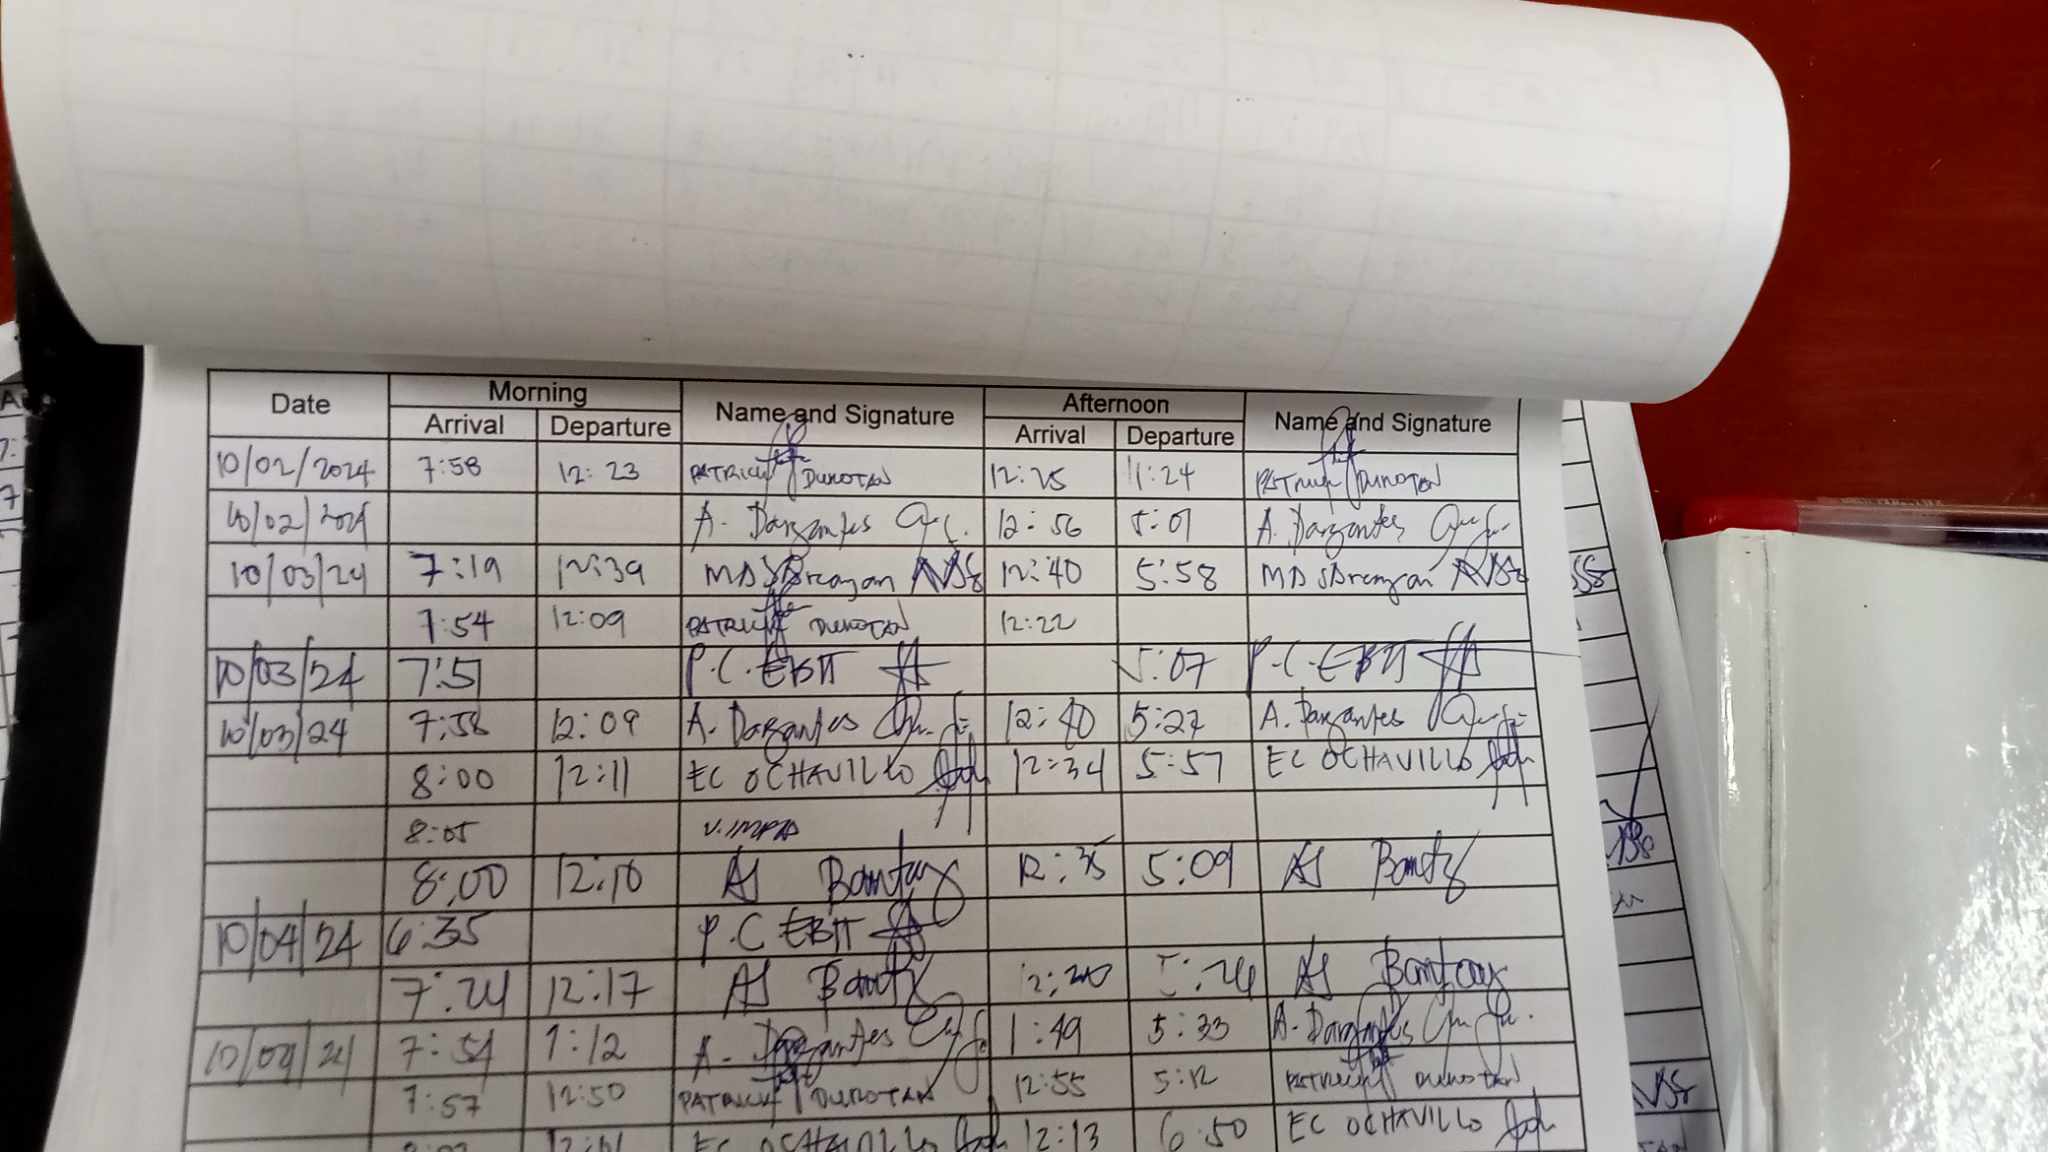 Date Morning Name and Signature Afternoon Name and Signature
Arrival Departure Arrival Departure
10/02/2024 7:58 12:23 PATRICK DUNOTAN 12:25 11:24 PATRICK DUNOTAN
10/02/2024 A. Dargantes 12:56 5:01 A. Dargantes
10/03/24 7:19 12:39 12:40 5:58
7:54 12:09 PATRICK DUNOTAN 12:22
10/03/24 7:51 P.C. EBIT 5:07 P.C. EBIT
10/03/24 7:58 12:09 A. Dargantes 12:40 5:27 A. Dargantes
8:00 12:11 EC OCHAVILLO 12:34 5:57 EC OCHAVILLO
8:05
8:00 12:10 AJ Bantay 12:35 5:09 AJ
10/04/24 6:35 P.C EBIT
7:24 12:17 AJ 12:20 AJ Bantay
10/04/24 7:54 1:12 A. Dargantes 1:49 5:33 A. Dargantes
7:57 12:50 PATRICK DUNOTAN 12:55 5:12 PATRICK DUNOTAN
EC OCHAVILLO 12:13 6:50 EC OCHAVILLO